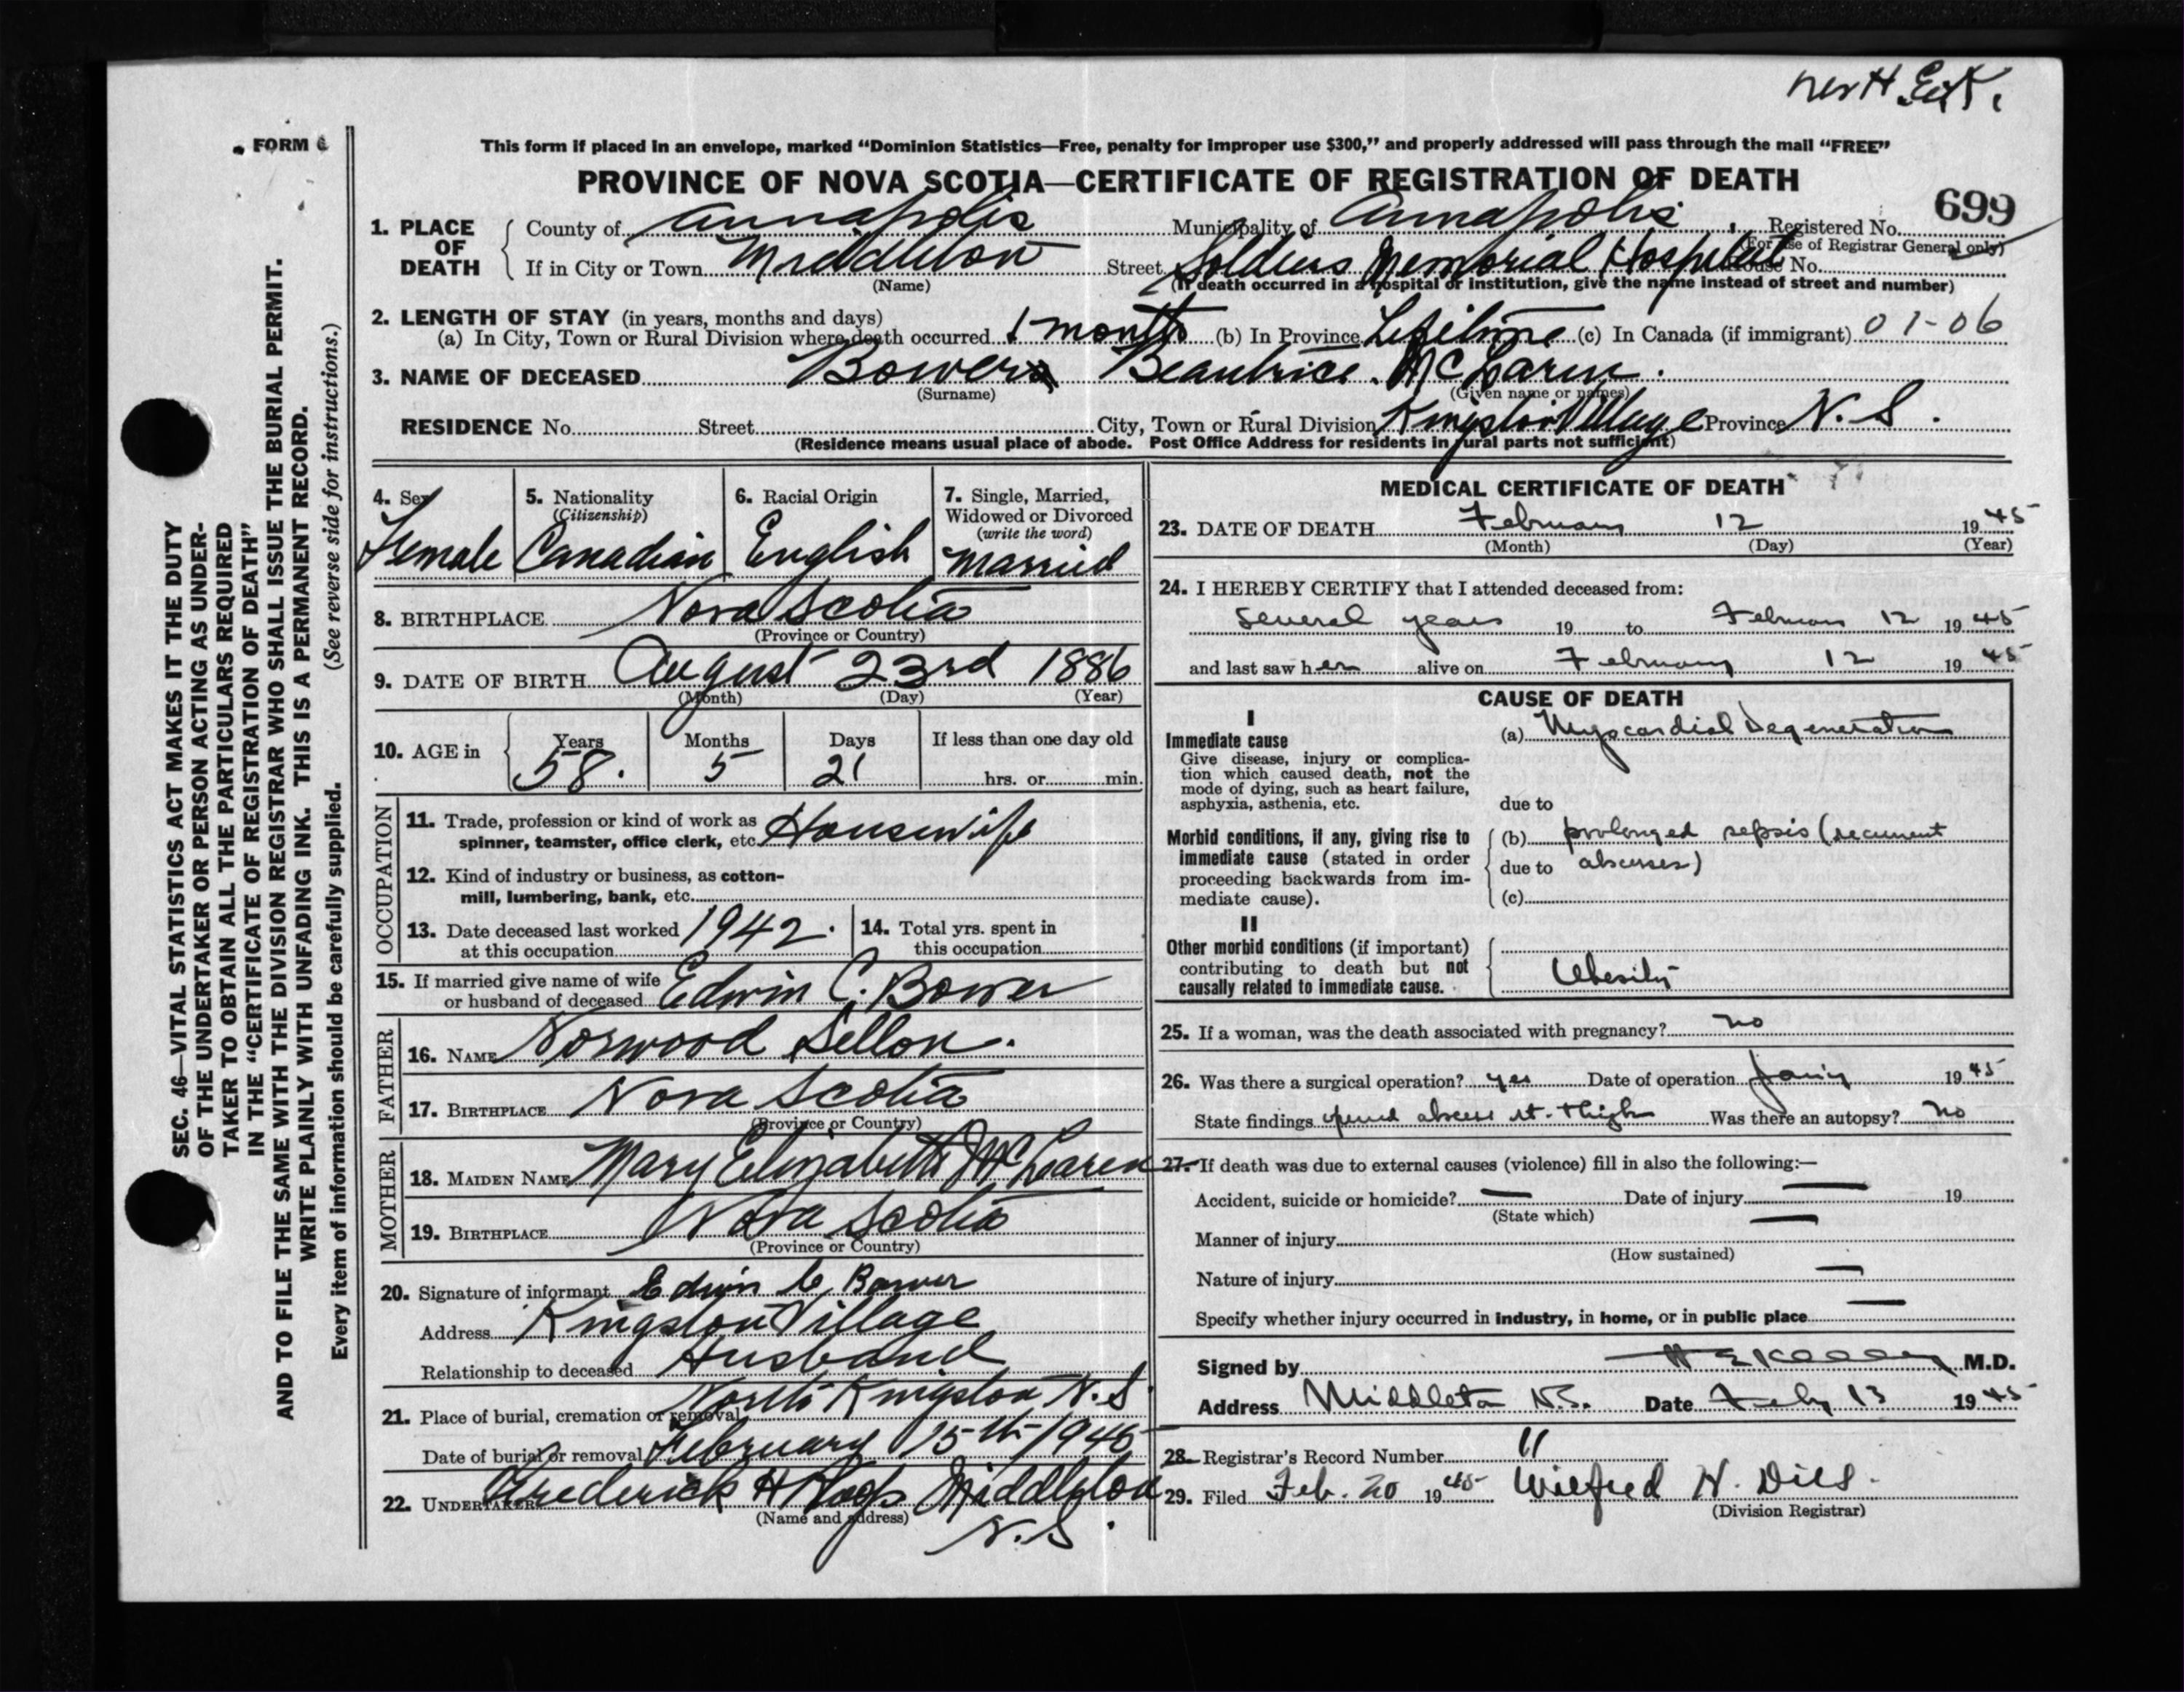 FORM 6
This form if placed in an envelope, marked “Dominion Statistics—Free, penalty for improper use $300,” and properly addressed will pass through the mail “FREE”
PROVINCE OF NOVA SCOTIA—CERTIFICATE OF REGISTRATION OF DEATH
699
1. PLACE OF DEATH County of Annapolis Municipality of Annapolis Registered No.
(For use of Registrar General only)
If in City or Town Middleton Street Soldiers Memorial Hospital House No.
(Name) (If death occurred in a hospital or institution, give the name instead of street and number)
2. LENGTH OF STAY (in years, months and days)
(a) In City, Town or Rural Division where death occurred 1 month (b) In Province Lifetime (c) In Canada (if immigrant) 01-06
3. NAME OF DECEASED Bower Beautrice McLaren.
(Surname) (Given name or names)
RESIDENCE No. Street City, Town or Rural Division Kingston Village Province N.S.
(Residence means usual place of abode. Post Office Address for residents in rural parts not sufficient)
4. Sex 5. Nationality 6. Racial Origin 7. Single, Married,
(Citizenship) Widowed or Divorced
(write the word)
Female Canadian English Married
8. BIRTHPLACE Nova Scotia
(Province or Country)
9. DATE OF BIRTH August 23rd 1886
(Month) (Day) (Year)
10. AGE in Years Months Days If less than one day old
58. 5 21 hrs. or min.
OCCUPATION
11. Trade, profession or kind of work as
spinner, teamster, office clerk, etc. Housewife
12. Kind of industry or business, as cotton-
mill, lumbering, bank, etc.
13. Date deceased last worked 1942. 14. Total yrs. spent in
at this occupation this occupation
15. If married give name of wife
or husband of deceased Edwin C. Bower
FATHER
16. NAME Norwood Sellon.
17. BIRTHPLACE Nova Scotia
(Province or Country)
MOTHER
18. MAIDEN NAME Mary Elizabeth McLaren
19. BIRTHPLACE Nova Scotia
(Province or Country)
20. Signature of informant Edwin C. Bower
Address Kingston Village
Relationship to deceased Husband
21. Place of burial, cremation or removal North Kingston N.S.
Date of burial or removal February 15th 1945
22. UNDERTAKER Frederick H Middleton
(Name and address) N.S.
MEDICAL CERTIFICATE OF DEATH
23. DATE OF DEATH February 12 1945
(Month) (Day) (Year)
24. I HEREBY CERTIFY that I attended deceased from:
Several years 19 to February 12 1945
and last saw her alive on February 12 1945
CAUSE OF DEATH
I
Immediate cause (a) Myocardial Degeneration
Give disease, injury or complica-
tion which caused death, not the
mode of dying, such as heart failure,
asphyxia, asthenia, etc. due to
Morbid conditions, if any, giving rise to (b) prolonged sepsis (recurrent
immediate cause (stated in order due to abscesses)
proceeding backwards from im-
mediate cause). (c)
II
Other morbid conditions (if important)
contributing to death but not Obesity
causally related to immediate cause.
25. If a woman, was the death associated with pregnancy? no
26. Was there a surgical operation? yes Date of operation 1945
State findings opened abscess rt. thigh Was there an autopsy? no
27. If death was due to external causes (violence) fill in also the following:—
Accident, suicide or homicide? — Date of injury — 19
(State which)
Manner of injury —
(How sustained)
Nature of injury —
Specify whether injury occurred in industry, in home, or in public place —
Signed by M.D.
Address Middleton N.S. Date Feby 13 1945
28. Registrar's Record Number 11
29. Filed Feb. 20 1945 Wilfred H. Dill.
(Division Registrar)
SEC. 46—VITAL STATISTICS ACT MAKES IT THE DUTY
OF THE UNDERTAKER OR PERSON ACTING AS UNDER-
TAKER TO OBTAIN ALL THE PARTICULARS REQUIRED
IN THE “CERTIFICATE OF REGISTRATION OF DEATH”
AND TO FILE THE SAME WITH THE DIVISION REGISTRAR WHO SHALL ISSUE THE BURIAL PERMIT.
WRITE PLAINLY WITH UNFADING INK. THIS IS A PERMANENT RECORD.
Every item of information should be carefully supplied. (See reverse side for instructions.)